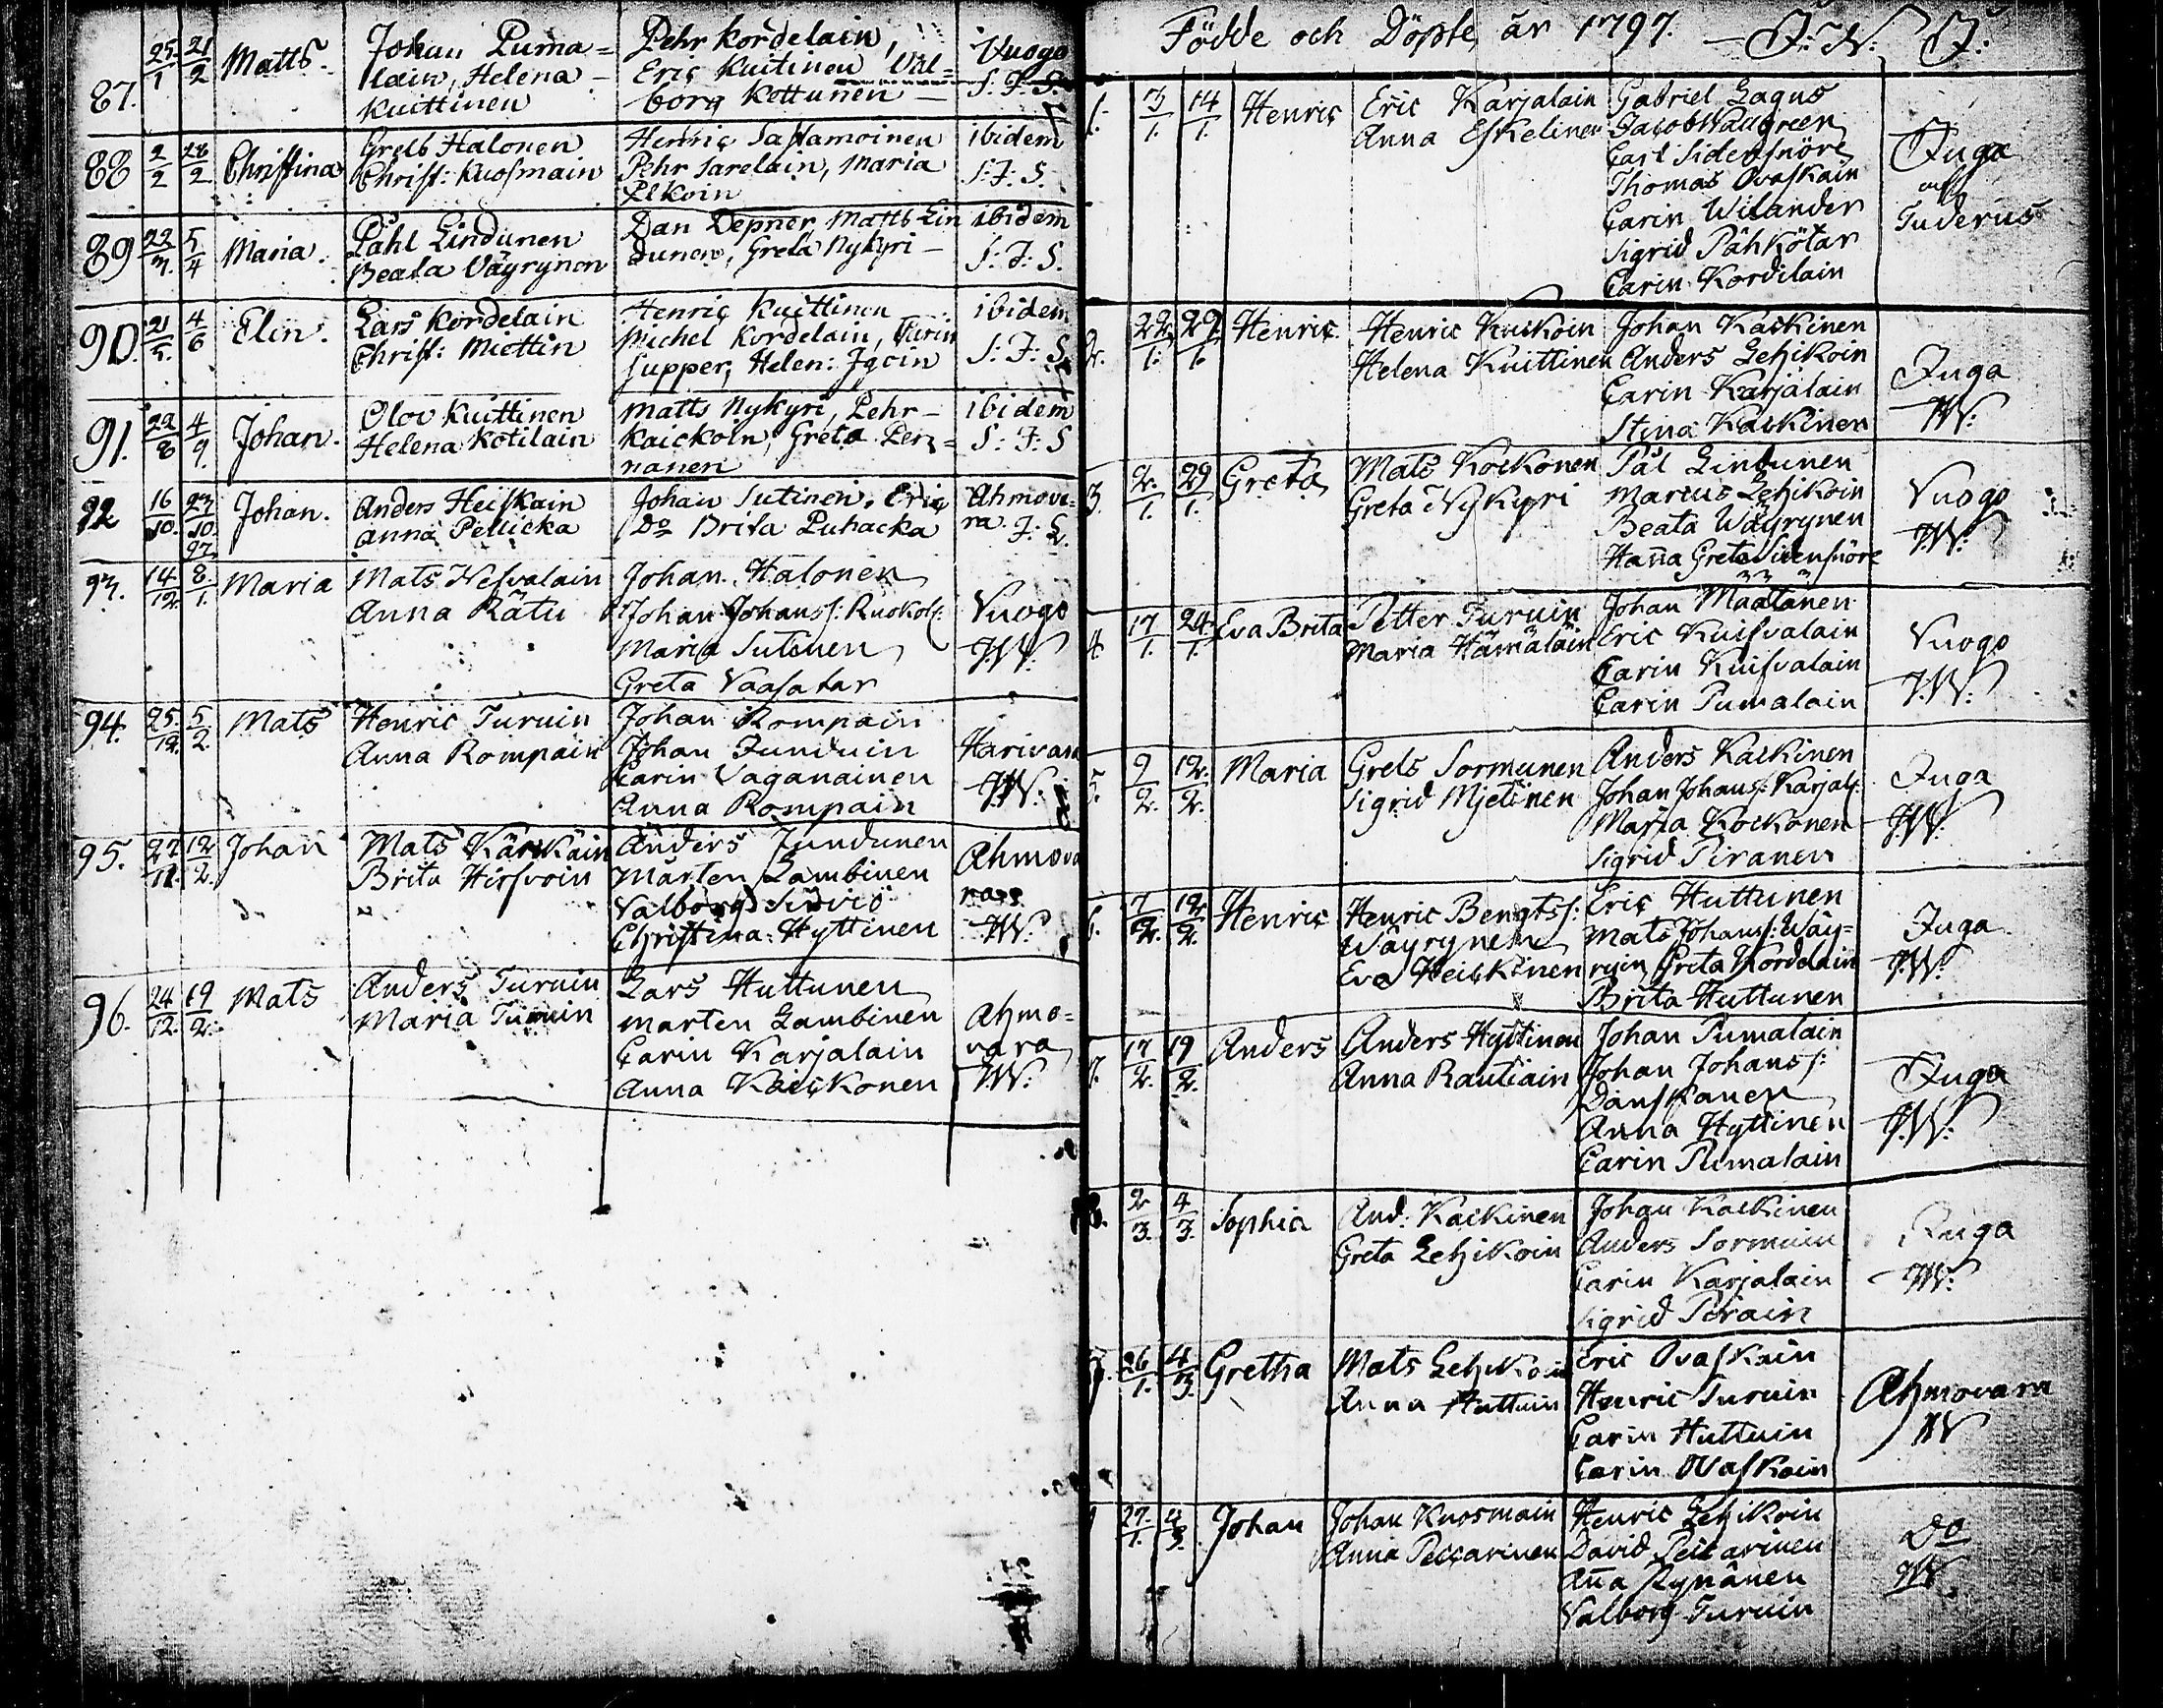 87. 25/1 21/2 Matts. Johan Puma= Pehr Kordelain, Vuogo
lain, Helena – Eric Kuitinen Val= S: J: S.
Kuittinen borg Kottunen –
88 2/2 28/2 Christina Grels Halonen Henric Sastamoinen ibidem
Christ: Kuosmain Pehr Sarelain, Maria S: J: S.
89 5/4 Maria. Påhl Lindunen Dan Depner, Matts Lin ibidem
Beata Väyrynen dunen, Greta Nykyri – S: J: S.
90. 21/5. 4/6 Elin. Lars Kordelain Henric Kuittinen ibidem
Christ: Miettin Michel Kordelain, Carin S: J: S.
Supper, Helen: Igoin
91. 22/8 4/9. Johan. Olov Kuittinen Matts Nykyri, Pehr – ibidem
Helena Kotilain Kaickoin, Greta Per= S: J: S
nanen
92 16/10. 23/10. Johan. Anders Heiskain Johan Sutinen, Eric Ahmova=
Anna Pellicka Do Brita Puhacka ra. J. S.
97
93. 14/12 8/1. Maria Mats Hesvalain Johan Halonen
Anna Rätu Johan Johanss: Ruokol: Vuogo
Maria Sutinen JW:
Greta Vaasatar
94. 25/12. 5/2. Mats Henric Turuin Johan Rompain
Anna Rompain Johan Junduin Harivara
Carin Vaganainen JW:
Anna Rompain
95. 12/2. Johan Mats Kärkäin Anders Jundunen Ahmova
Brita Hirsvoin Mårten Lambinen
Valborg Sidviö
Christina Hyttinen JW:
96. 24/12. 19/2. Mats Anders Turuin Lars Huttunen
Maria Turuin Marten Lambinen Ahmo=
Carin Karjalain vara
Anna Kaickonen JW:
Födde och Döpte år 1797. – J: N: J:
1. 3/1. 14/1. Henric Eric Karjalain Gabriel Lagus
Anna Eskelinen Jacob Wallgreen
Carl Sidensnöre Juga
Thomas Ovaskain
Carin Wilander Tuderus
Sigrid Pähkötar
Carin Kordilain
2. 22/1. 29/1. Henric Henric Kaikoin Johan Kaikinen
Helena Kuittinen Anders Lehikoin Juga
Carin Karjalain JW:
Stina Kaikinen
3. 2/1. 29/1. Greta Mats Kockonen Pål Lindunen
Greta Nykyri Marcus Lehikoin Vuogo
Beata Wäyrynen JW:
Hanna Greta Sidensnöre
4 17/1. 24/1. Eva Brita Petter Turuin Johan Määtänen
Maria Hämäläin Eric Kuisvalain Vuogo
Carin Kuisvalain JW:
Carin Pumalain
5. 9/2. 12/2. Maria Grels Sormunen Anders Kaikinen
Sigrid Mjetinen Johan Johanss: Karjal: Juga
Maria Kockonen JW:
Sigrid Piranen
6. 7/2. 12/2. Henric Henric Bengtss: Eric Huttunen
Wäyrynen Mats Johanss: Wäy= Juga
Eva Heiskinen ryin, Greta Kordelain JW:
Brita Huttunen
7. 17/2. 19/2. Anders Anders Hyttinen Johan Pumalain
Anna Rautiain Johan Johanss: Juga
Danskanen JW:
Anna Hyttinen
Carin Pumalain
8. 2/3. 4/3. Sophia And: Kaikinen Johan Kaikinen
Greta Lehikoin Anders Sormuin Juga
Carin Karjalain JW:
Sigrid Pirain
9. 26/1. 4/3. Gretha Mats Lehikoin Eric Ovaskain
Anna Huttuin Henric Turuin Ahmovara
Carin Huttuin JW
Carin Ovaskain
27/1. 4/3. Johan Johan Kuosmain Henric Lehikoin
Anna Peccarinen David Peccarinen Do
Anna Rynänen JW.
Valborg Turuin